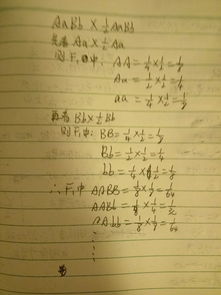 AaBb × ½AaBb
先看Aa × ½Aa
则F₁中: AA = ¼ × ½ = ⅛
Aa = ½ × ½ = ¼
aa = ¼ × ½ = ⅛
再看Bb × ½Bb
则F₁中: BB = ¼ × ½ = ⅛
Bb = ½ × ½ = ¼
bb = ¼ × ½ = ⅛
∴ F₁中 AABB = ⅛ × ⅛ = 1/64
AABb = ⅛ × ¼ = 1/32
AAbb = ⅛ × ⅛ = 1/64